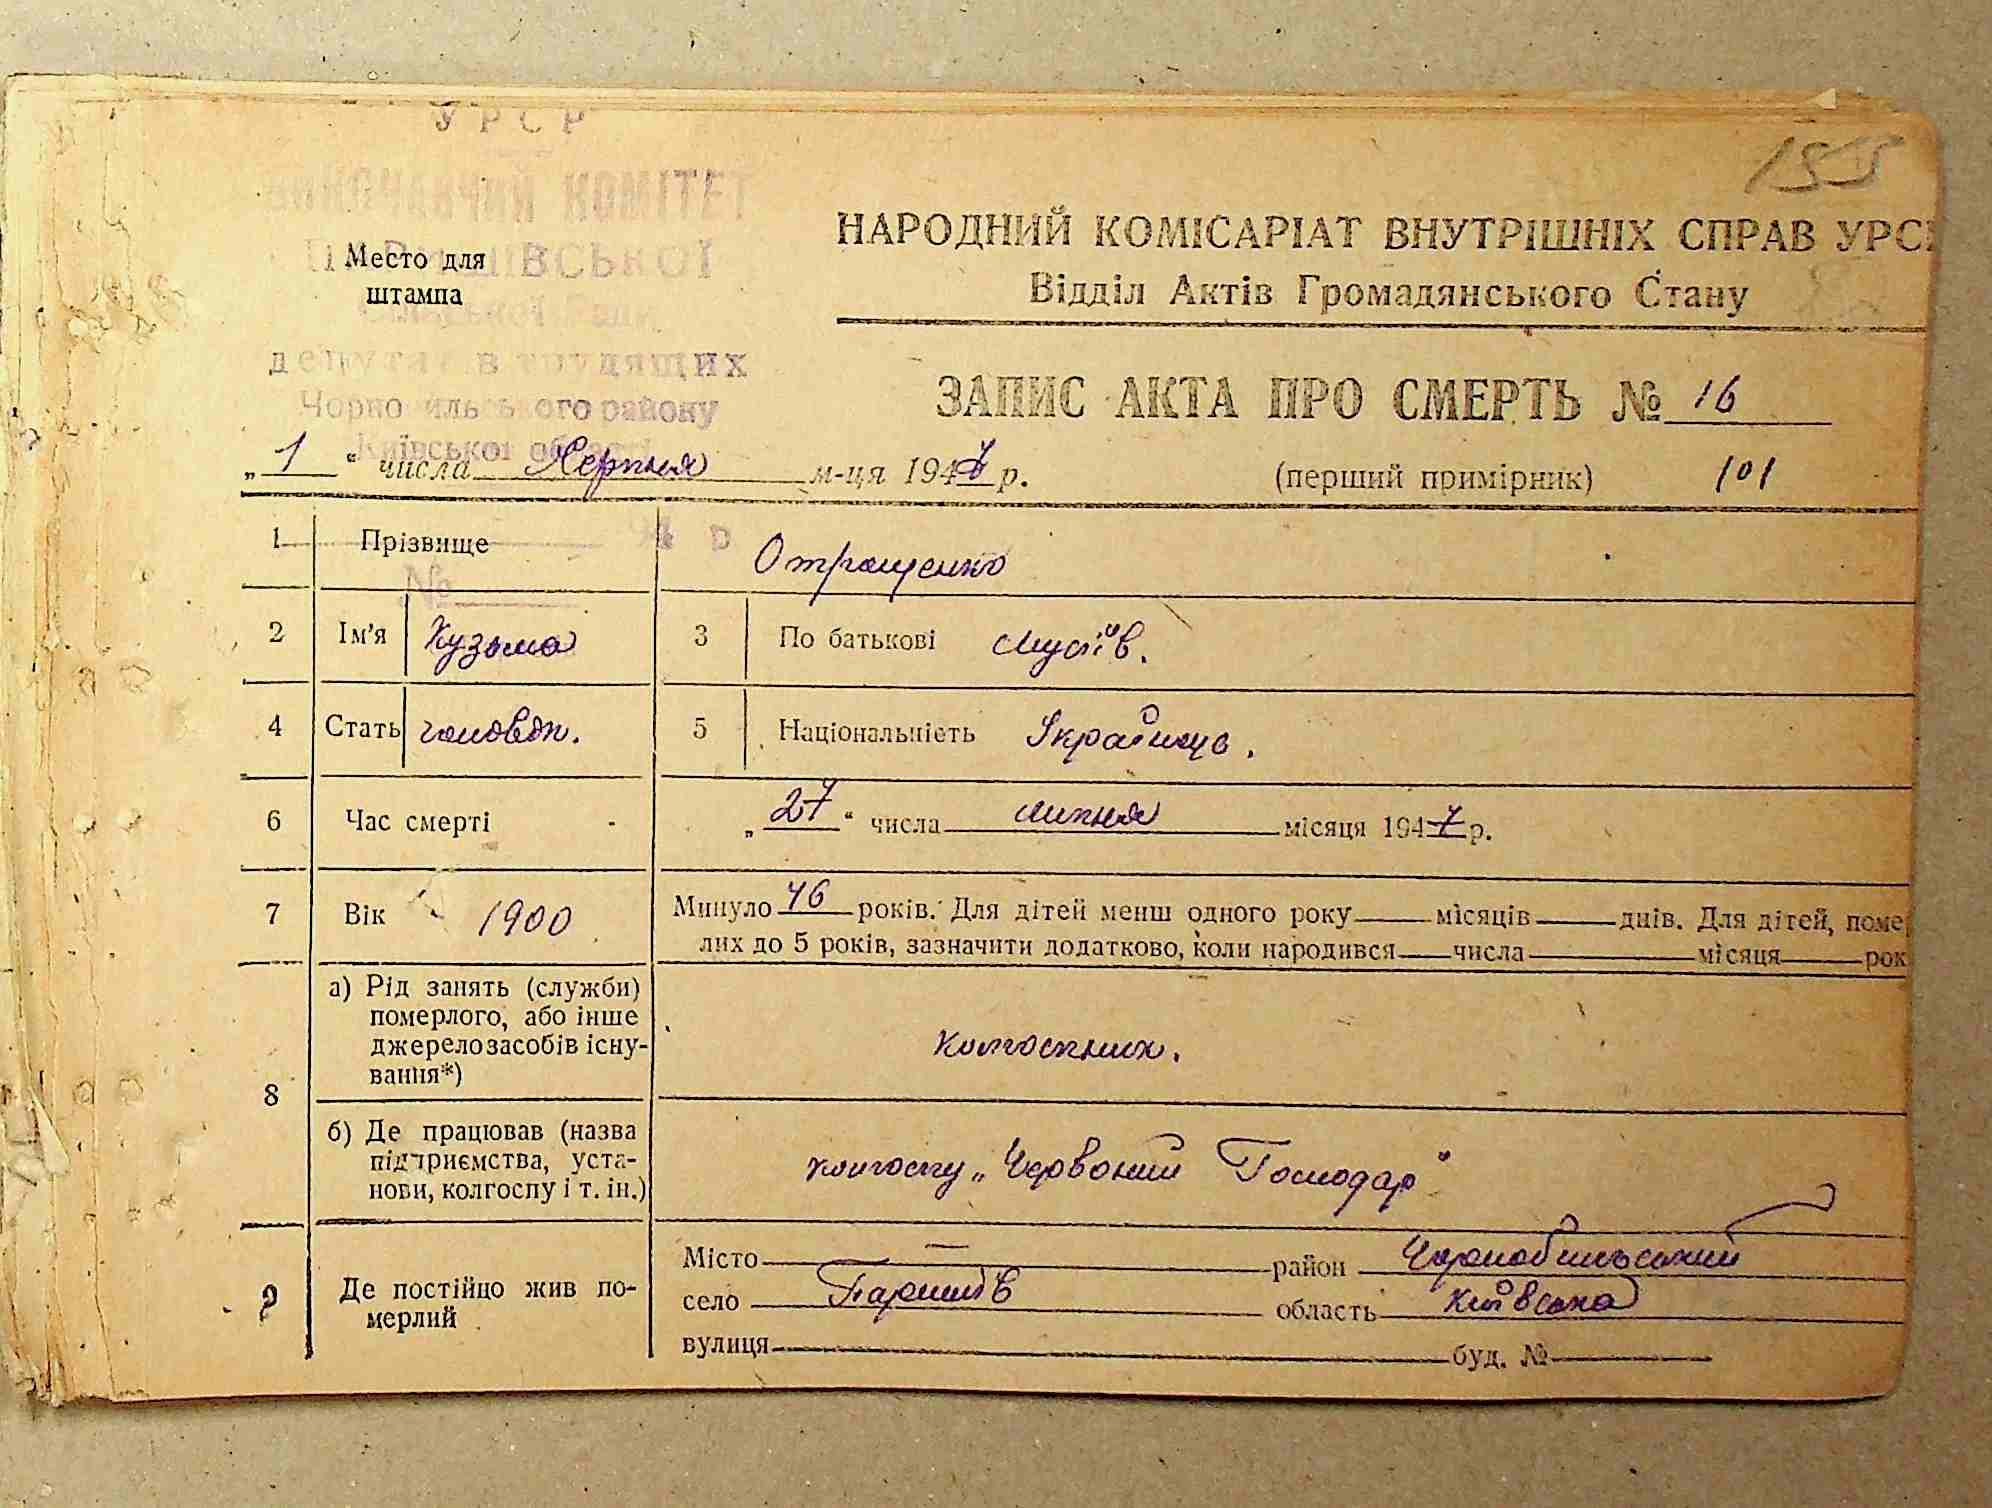 155
УРСР
ВИКОНАВЧИЙ КОМІТЕТ
ПАРИШІВСЬКОЇ
Сільської Ради
депутатів трудящих
Чорнобильського району
Київської області
№
Место для
штампа
НАРОДНИЙ КОМІСАРІАТ ВНУТРІШНІХ СПРАВ УРСР
Відділ Актів Громадянського Стану
ЗАПИС АКТА ПРО СМЕРТЬ № 16
„ 1 “ числа Серпня м-ця 1947 р. (перший примірник) 101
1 Прізвище Отрощенко
2 Ім'я Кузьма 3 По батькові Мусіїв.
4 Стать чоловіч. 5 Національність Українець.
6 Час смерті „ 27 “ числа липня місяця 1947 р.
7 Вік 1900 Минуло 46 років. Для дітей менш одного року місяців днів. Для дітей, поме
лих до 5 років, зазначити додатково, коли народився числа місяця рок
8 а) Рід занять (служби)
померлого, або інше
джерело засобів існу-
вання*)
колгоспник.
б) Де працював (назва
підприємства, уста-
нови, колгоспу і т. ін.)
колгоспу „Червоний Господар“
9 Де постійно жив по-
мерлий
Місто — район Чорнобильський
село Паришів область Київська
вулиця буд. №